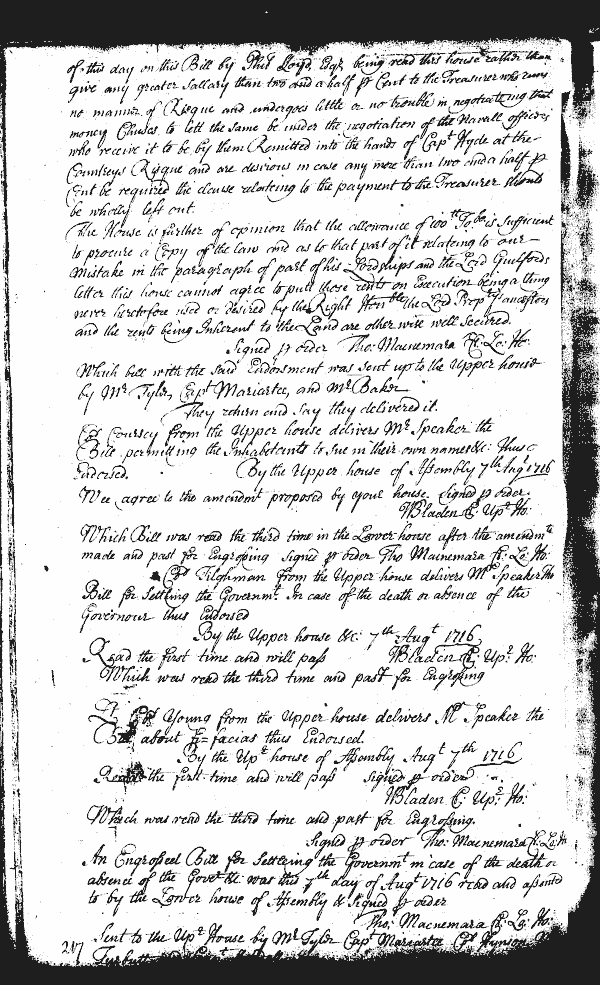 of this day on this Bill by Phil Lloyd, Esqr. being read this house rather than
give any greater Sallary than two and a half p Cent to the Treasurer who runs
no manner of Risque and undergoes little or no trouble in negotiating that
money Chuses to lett the same be under the negotiation of the Navall officers
who receive it to be by them Remitted into the hands of Capt Hyde at the
Countreys Risque and are desirous in case any more than two and a half p
Cent be required the clause relateing to the payment to the Treasurer should
be wholly left out.
The House is further of opinion that the allowance of 100 lb Tobo is Sufficient
to procure a Copy of the law and as to that part of it relateing to our
Mistake in the paragraph of part of his Lordships and the Lord Guilfords
letter this house cannot agree to putt those rents on Execution being a thing
never heretofore used or desired by the Right Honble the Lord Prop Ancestors
and the rents being Inherent to the Land are other wise well Secured.
Signed p order Tho: Macnemara Cl: Lo: Ho:
Which bill with the said Endorsment was sent up to the Upper house
by Mr Tyler, Capt Mariartee, and Mr Baker
They return and say they delivered it.
Col Coursey from the Upper house delivers Mr Speaker the
Bill permitting the Inhabitants to sue in their own names &c: thus
Endorsed. By the Upper house of Assembly 7th Augt 1716
Wee agree to the amendmt proposed by your house. Signed p order.
WBladen Cl. Upr Ho:
Which Bill was read the third time in the Lower house after the amendmt
made and past for Engrossing Signed p order Tho Macnemara Cl: Lo: Ho:
Col Tilghman from the Upper house delivers Mr Speaker the
Bill for Settling the Governmt. In case of the death or absence of the
Governour thus Endorsed
By the Upper house &c: 7th Augt 1716
Read the first time and will pass WBladen Cl: Upr: Ho:
Which was read the third time and past for Engrossing
Col Young from the Upper house delivers Mr Speaker the
Bill about facias thus Endorsed.
By the Upr house of Assembly Augt 7th 1716
Read the first time and will pass signed p order
WBladen Cl: Upr: Ho:
Which was read the third time and past for Engrossing.
Signed p order Tho: Macnemara Cl: Lo: H
An Engrossed Bill for Settling the Governmt in case of the death or
absence of the Govr &c was this 7th day of Augt 1716 read and assented
to by the Lower house of Assembly & Signed p order
Tho: Macnemara Cl: Lo: Ho:
Sent to the Upr House by Mr Tyler Capt Mariartee Hynson
217